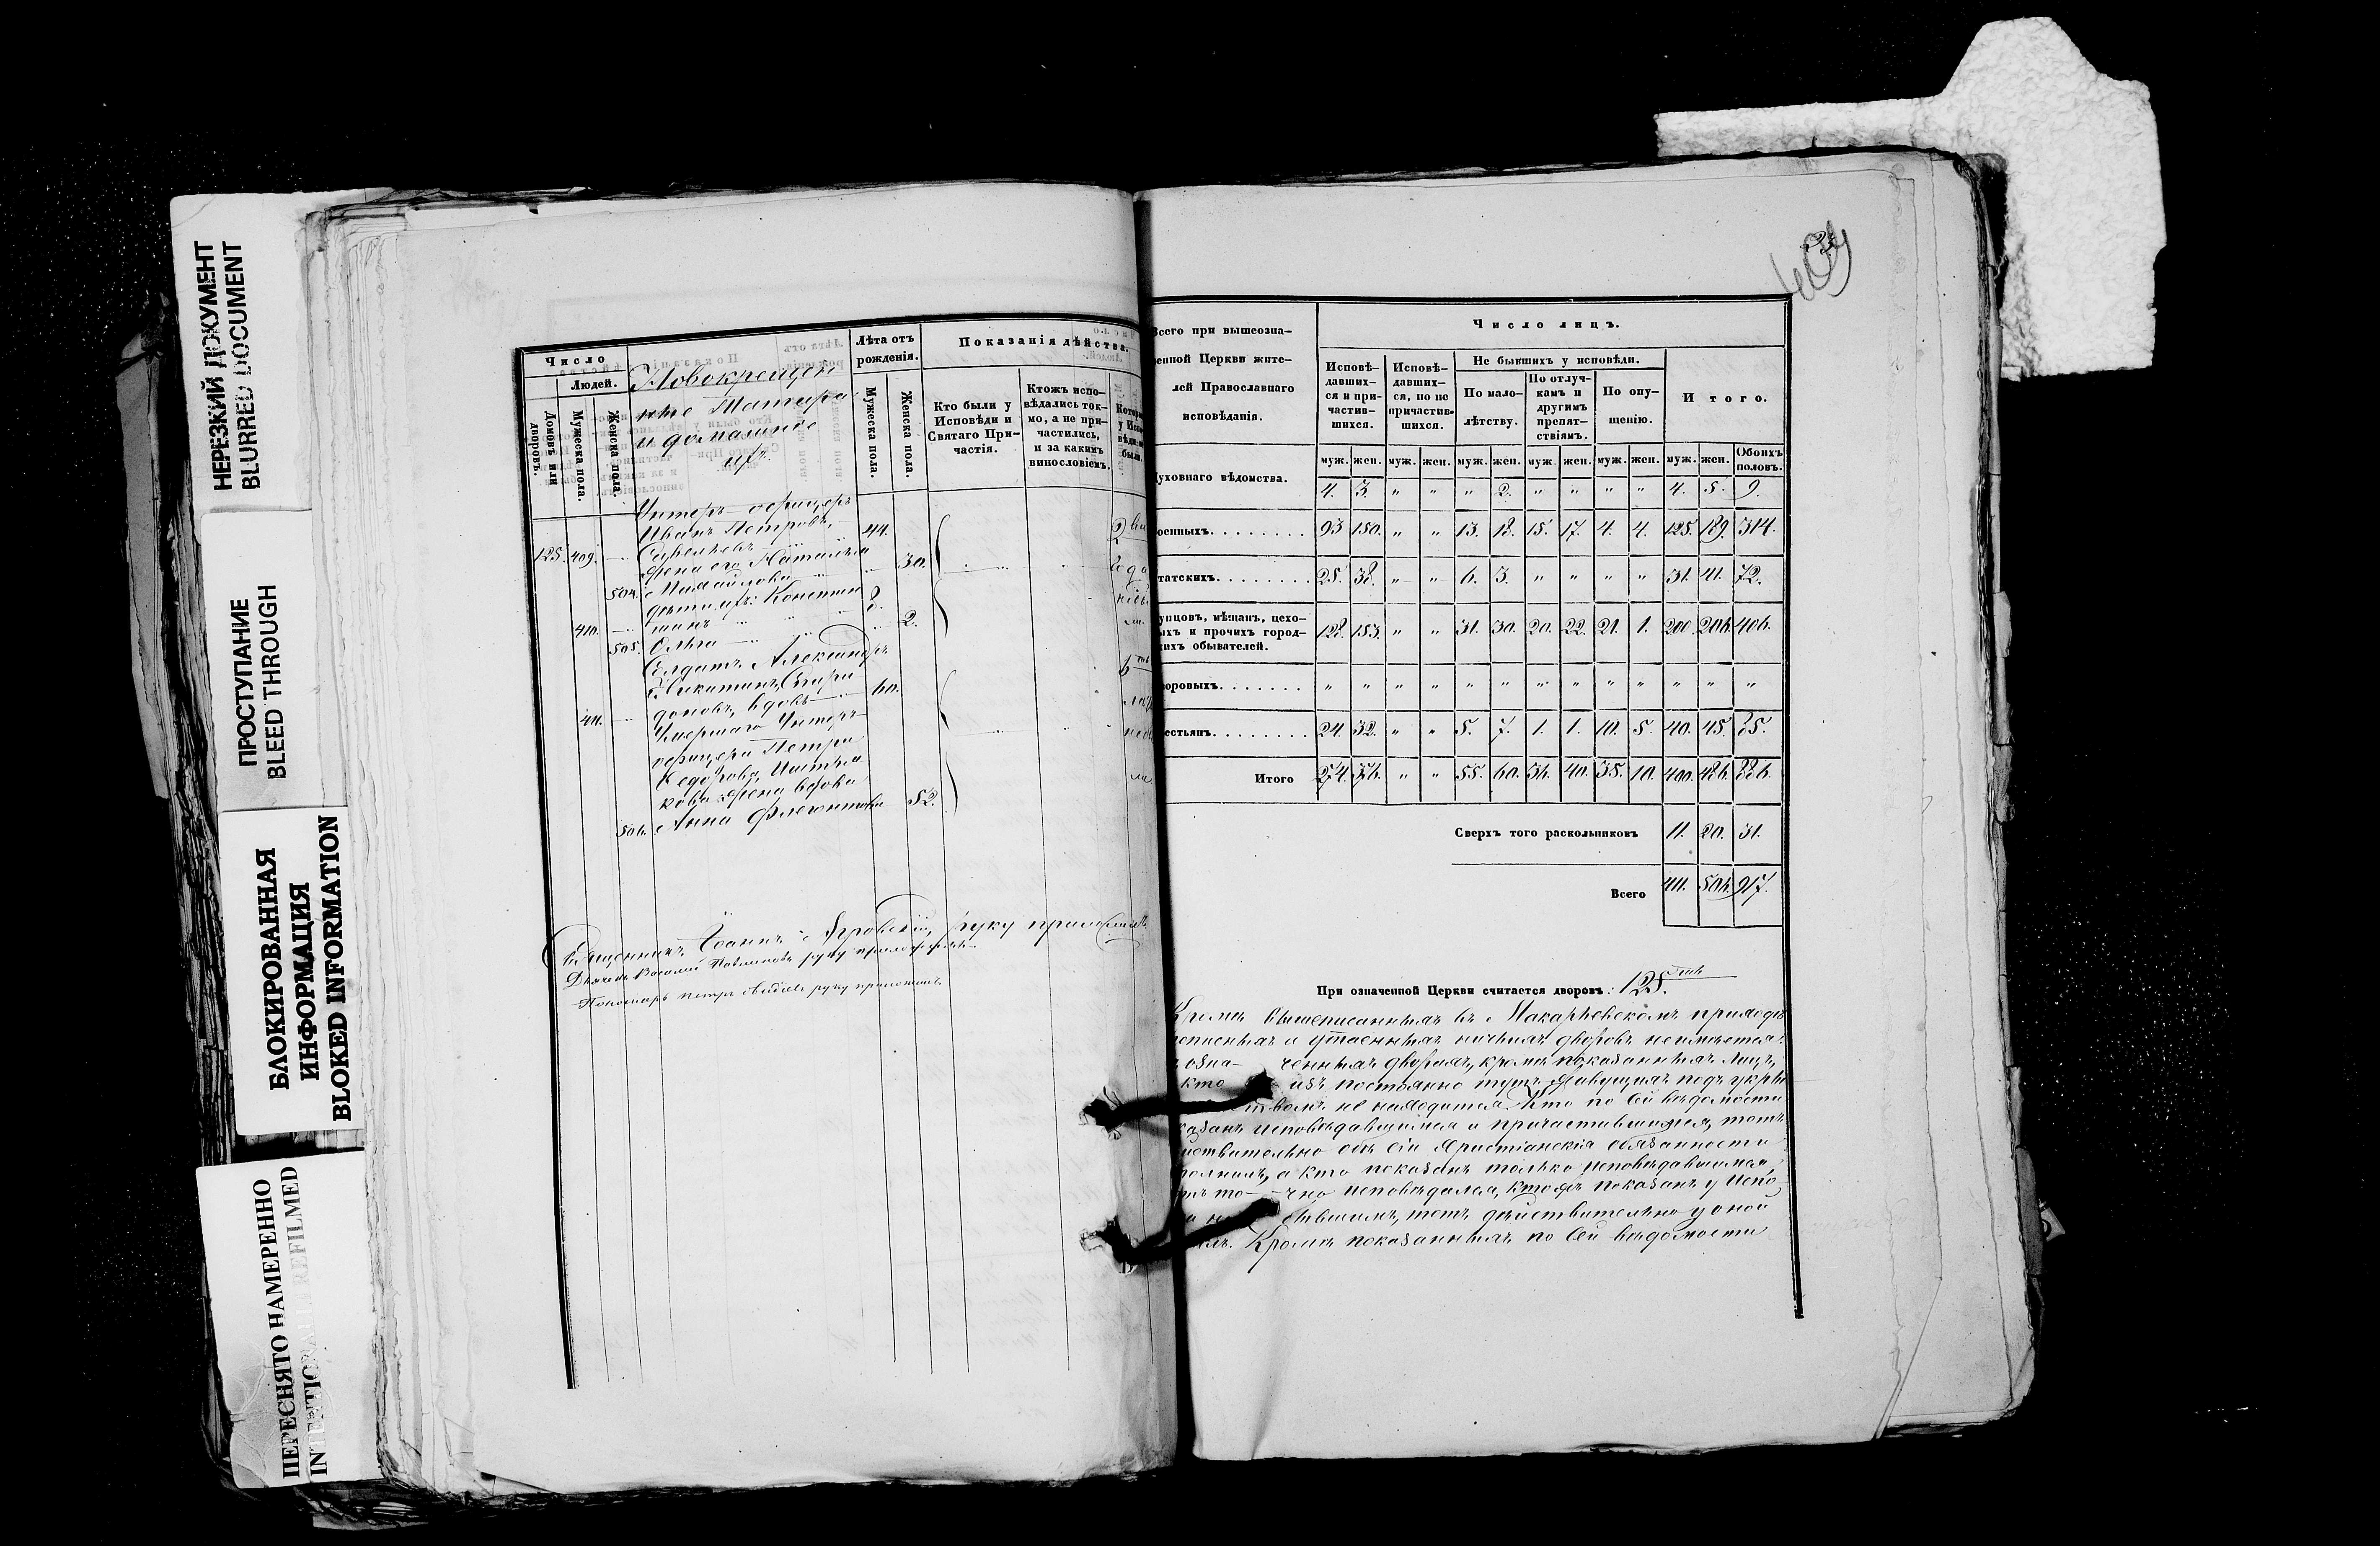 НЕРЕЗКИЙ ДОКУМЕНТ
BLURRED DOCUMENT
ПРОСТУПАНИЕ
BLEED THROUGH
БЛОКИРОВАННАЯ
ИНФОРМАЦИЯ
BLOKED INFORMATION
ПЕРЕСНЯТО НАМЕРЕННО
INTENTIONALLY REFILMED
Число
Людей.
Домовъ или дворовъ.
Мужеска пола.
Женска пола.
Новокрещен
ные Татары
и домашніе
ихъ.
Лѣта отъ
рожденія.
Мужеска пола.
Женска пола.
Показанія дѣйства.
Кто были у
Исповѣди и
Святаго При-
частія.
Ктожъ испо-
вѣдались ток-
мо, а не при-
частились,
и за какимъ
винословіемъ.
Унтеръ-офицеръ
Иванъ Петровъ
125. 409. 44.
жена его Наталья
504. Михайлова 30.
дѣти ихъ: Констан
410. тинъ 8.
505. Ольга 2.
Солдатъ Александръ
Никитинъ Спири
411. доновъ, вдовъ 60.
Умершаго Унтеръ-
офицера Петра
Федорова
кова жена вдова
506. Анна 52.
Священникъ Іоаннъ руку приложилъ
Дьячекъ Василій руку приложилъ
Пономарь Петръ руку приложилъ
Всего при вышеозна-
ченной Церкви жите-
лей Православнаго
исповѣданія.
Число лицъ.
Исповѣ-
давших-
ся и при-
частив-
шихся.
Исповѣ-
давших-
ся, но не
причастив-
шихся.
Не бывшихъ у исповѣди.
По мало-
лѣтству.
По отлуч-
камъ и
другимъ
препят-
ствіямъ.
По опу-
щенію.
Итого.
муж. жен. муж. жен. муж. жен. муж. жен. муж. жен. муж. жен. Обоихъ половъ.
уховнаго вѣдомства. 4. 3. " " " 2. " " " " 4. 5. 9.
оенныхъ. 93 150. " " 13. 18. 15. 17. 4. 4. 125. 189. 314.
татскихъ. 25. 38. " " 6. 3. " " " " 31. 41. 72.
упцовъ, мѣщанъ, цехо-
ыхъ и прочихъ город-
кихъ обывателей. 128. 153. " " 31. 30. 20. 22. 21. 1. 200. 206. 406.
оровыхъ. " " " " " " " " " " " " "
естьянъ. 24. 32. " " 5. 7. 1. 1. 10. 5. 40. 45. 85.
Итого 274. 376. " " 55. 60. 36. 40. 35. 10. 400. 486. 886.
Сверхъ того раскольниковъ 11. 20. 31.
Всего 411. 506. 917.
При означенной Церкви считается дворовъ: 125.
Кромѣ вышеписанныхъ въ Макарьевскомъ приходѣ
и утаенныхъ ничьихъ дворовъ неимѣется.
ченныхъ дворахъ, кромѣ показанныхъ лицъ,
кто изъ постоянно тутъ живущихъ подъ укры
тельствомъ не находится. Кто по сей вѣдомости
казанъ исповѣдавшимся и причастившимся, тотъ
йствительно обѣ сіи христіанскія обязанности
полнилъ, а кто показанъ только исповѣдавшимся,
то чно исповѣдался, ктожъ показанъ у Испо
бывшимъ, тотъ дѣйствительно у оной
Кромѣ показанныхъ по сей вѣдомости